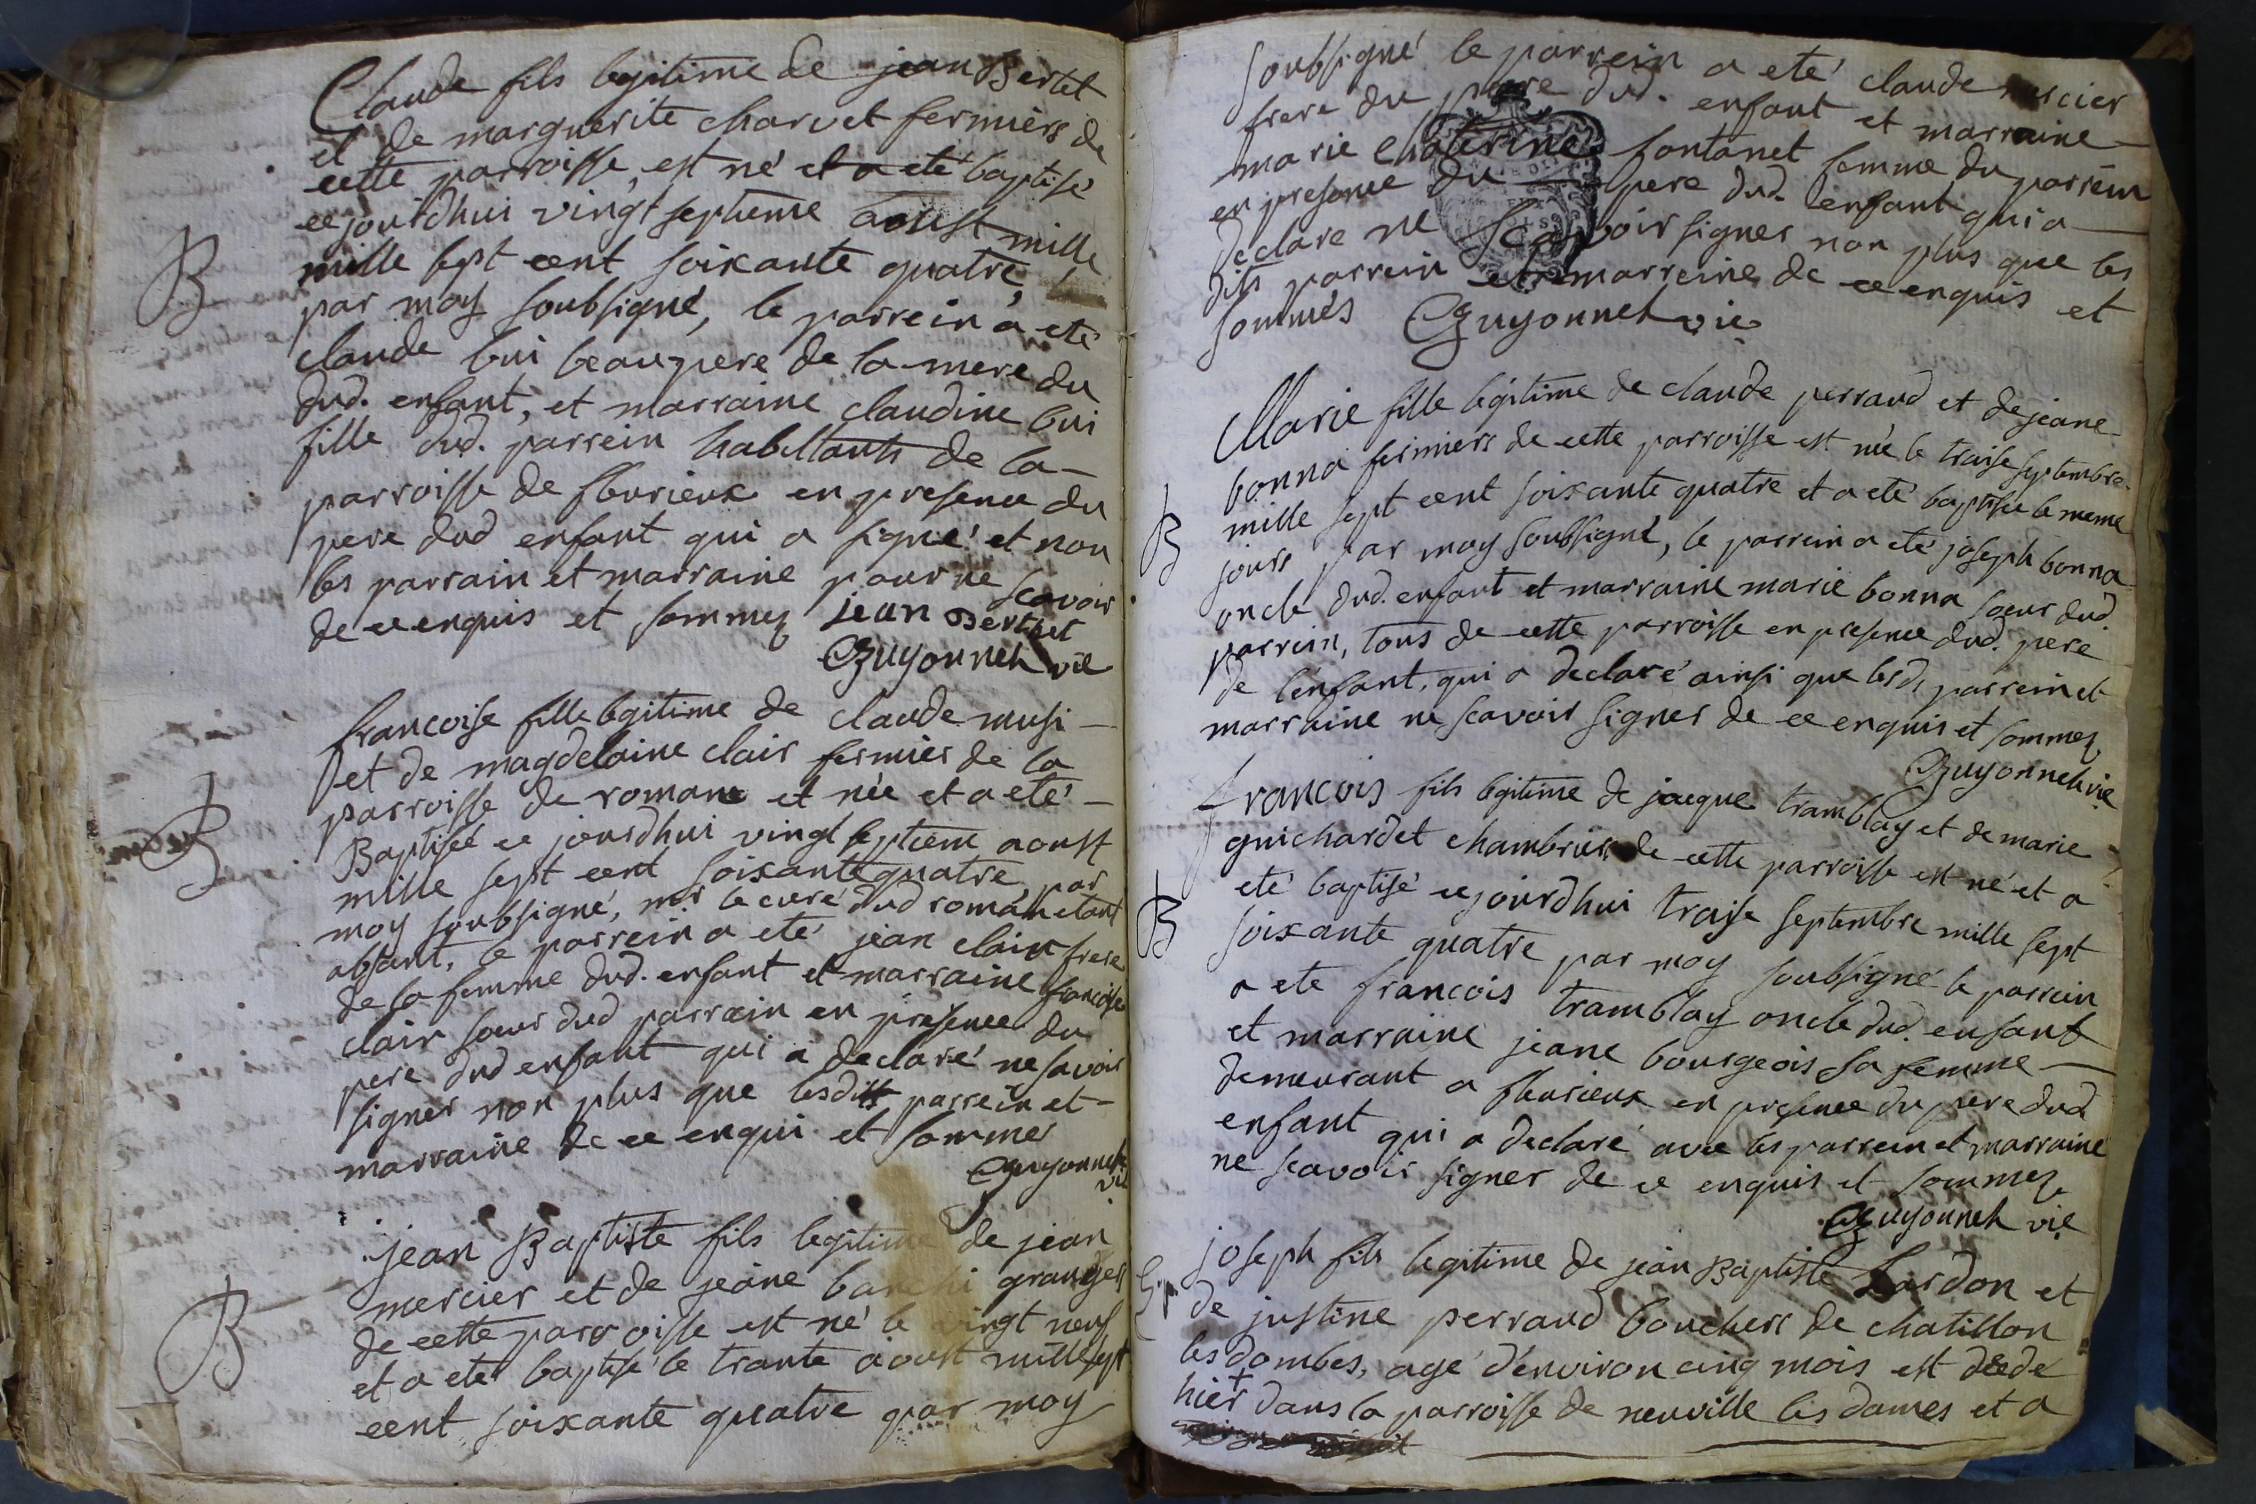 Claude fils legitime de jean Bertet
et de marguerite charvet fermiers de
cette parroisse, est né et a eté baptisé
ce jourdhui vingt septieme aoust mille
mille sept cent soixante quatre,
par moy soubsigné, le parrein a eté
claude bui beaupere de la mere du
dud. enfant, et marraine claudine bui
fille dud. parrein habittants de la
parroisse de fleurieux en presence du
pere dud enfant qui a signé et non
les parrain et marraine pour ne scavoir
de ce enquis et sommez jean Berthet
Guyonnet vic
B
francoise fille legitime de claude musi
et de magdelaine clair fermier de la
parroisse de romane et née et a eté
Baptisée ce jourdhui vingt septiem aoust
mille sept cent soixante quatre, par
moy soubsigné, mr le curé dud romane etant
absant, le parrein a eté jean clair frere
de la femme dud. enfant et marraine francoise
clair soeur dud parrain en presence du
pere dud enfant qui a declaré ne savoir
signer non plus que lesdits parrein et
marraine de ce enqui et sommer
Guyonnet
vic
B
jean Baptiste fils legitime de jean
mercier et de jeane granger
de cette parroisse est né le vingt neuf
et a eté baptisé le trante aoust mille sept
cent soixante quatre par moy
B
soubsigné le parrein a eté claude mercier
frere du pere dud. enfant et marraine
marie chaterine fontanet femme du parrein
en presence du pere dud. enfant qui a
declare ne scavoir signer non plus que les
dits parrein et marreine de ce enquis et
sommés Guyonnet vic
Marie fille legitime de claude perraud et de jeane
bonna fermiers de cette parroisse est née le traise septembre
mille sept cent soixante quatre et a eté baptisée le meme
jour par moy soubsigné, le parrein a eté joseph bonna
oncle dud. enfant et marraine marie bonna soeur dud
parrein, tous de cette parroisse en presence dud. pere
de l'enfant, qui a declaré ainsi que lesd. parrein et
marraine ne scavoir signer de ce enquis et sommez
Guyonnet vic
B
francois fils legitime de jacque tramblay et de marie
guichardet chambrier de cette parroisse est né et a
eté baptisé ce jourdhui traise septembre mille sept
soixante quatre par moy soubsigné le parrein
a ete francois tramblay oncle dud. enfant
et marraine jeane bourgeois sa femme
demeurant a fleurieux en presence du pere dud
enfant qui a declaré avec les parrein et marraine
ne scavoir signer de ce enquis et sommez
Guyonnet vic
B
joseph fils legitime de jean Baptiste Lardon et
de justine perraud bouchers de chatillon
les dombes, agé d'environ cinq mois est decedé
hier dans la parroisse de neuville les dames et a